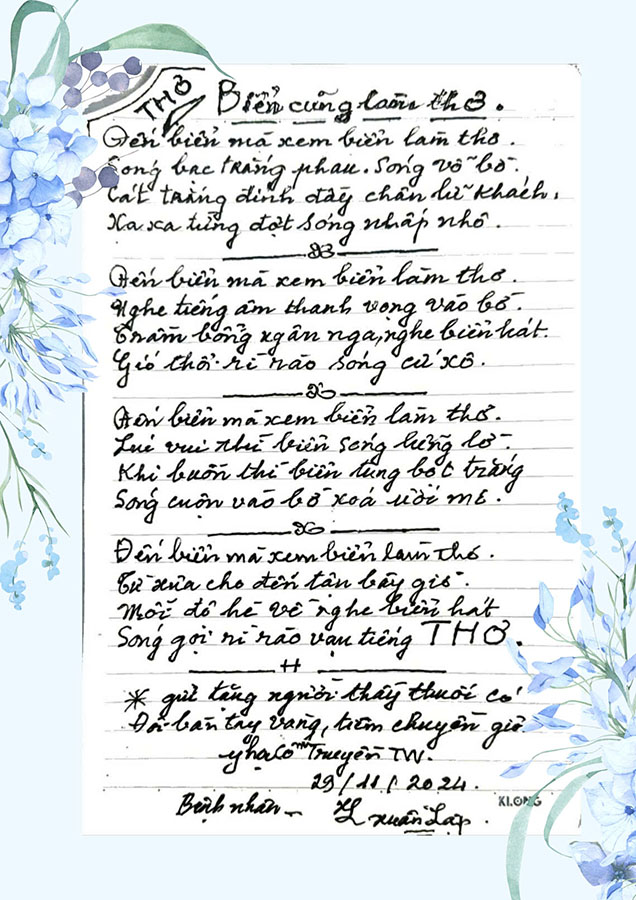 THƠ
Biển cũng làm thơ.
Đến biển mà xem biển làm thơ.
Song bạc trắng phau. Sóng vỗ bờ.
Cát trắng dính đầy chân lữ khách.
Xa xa từng đợt sóng nhấp nhô.
Đến biển mà xem biển làm thơ.
Nghe tiếng âm thanh vọng vào bờ.
Trầm bổng ngân nga, nghe biển hát.
Gió thổi rì rào sóng cứ xô.
Đến biển mà xem biển làm thơ.
Lúc vui thì biển sóng lững lờ.
Khi buồn thì biển tung bọt trắng
Sóng cuộn vào bờ xoá ước mơ.
Đến biển mà xem biển làm thơ.
Từ xưa cho đến tận bây giờ.
Mỗi độ hè về nghe biển hát
Sóng gọi rì rào vạn tiếng THƠ.
* gửi tặng người thầy thuốc có
Đôi bàn tay vàng, tiêm chuyền giỏi
y học Cổ Truyền TW.
29/11/2024.
Bệnh nhân - Xuân Lập.
KLONG